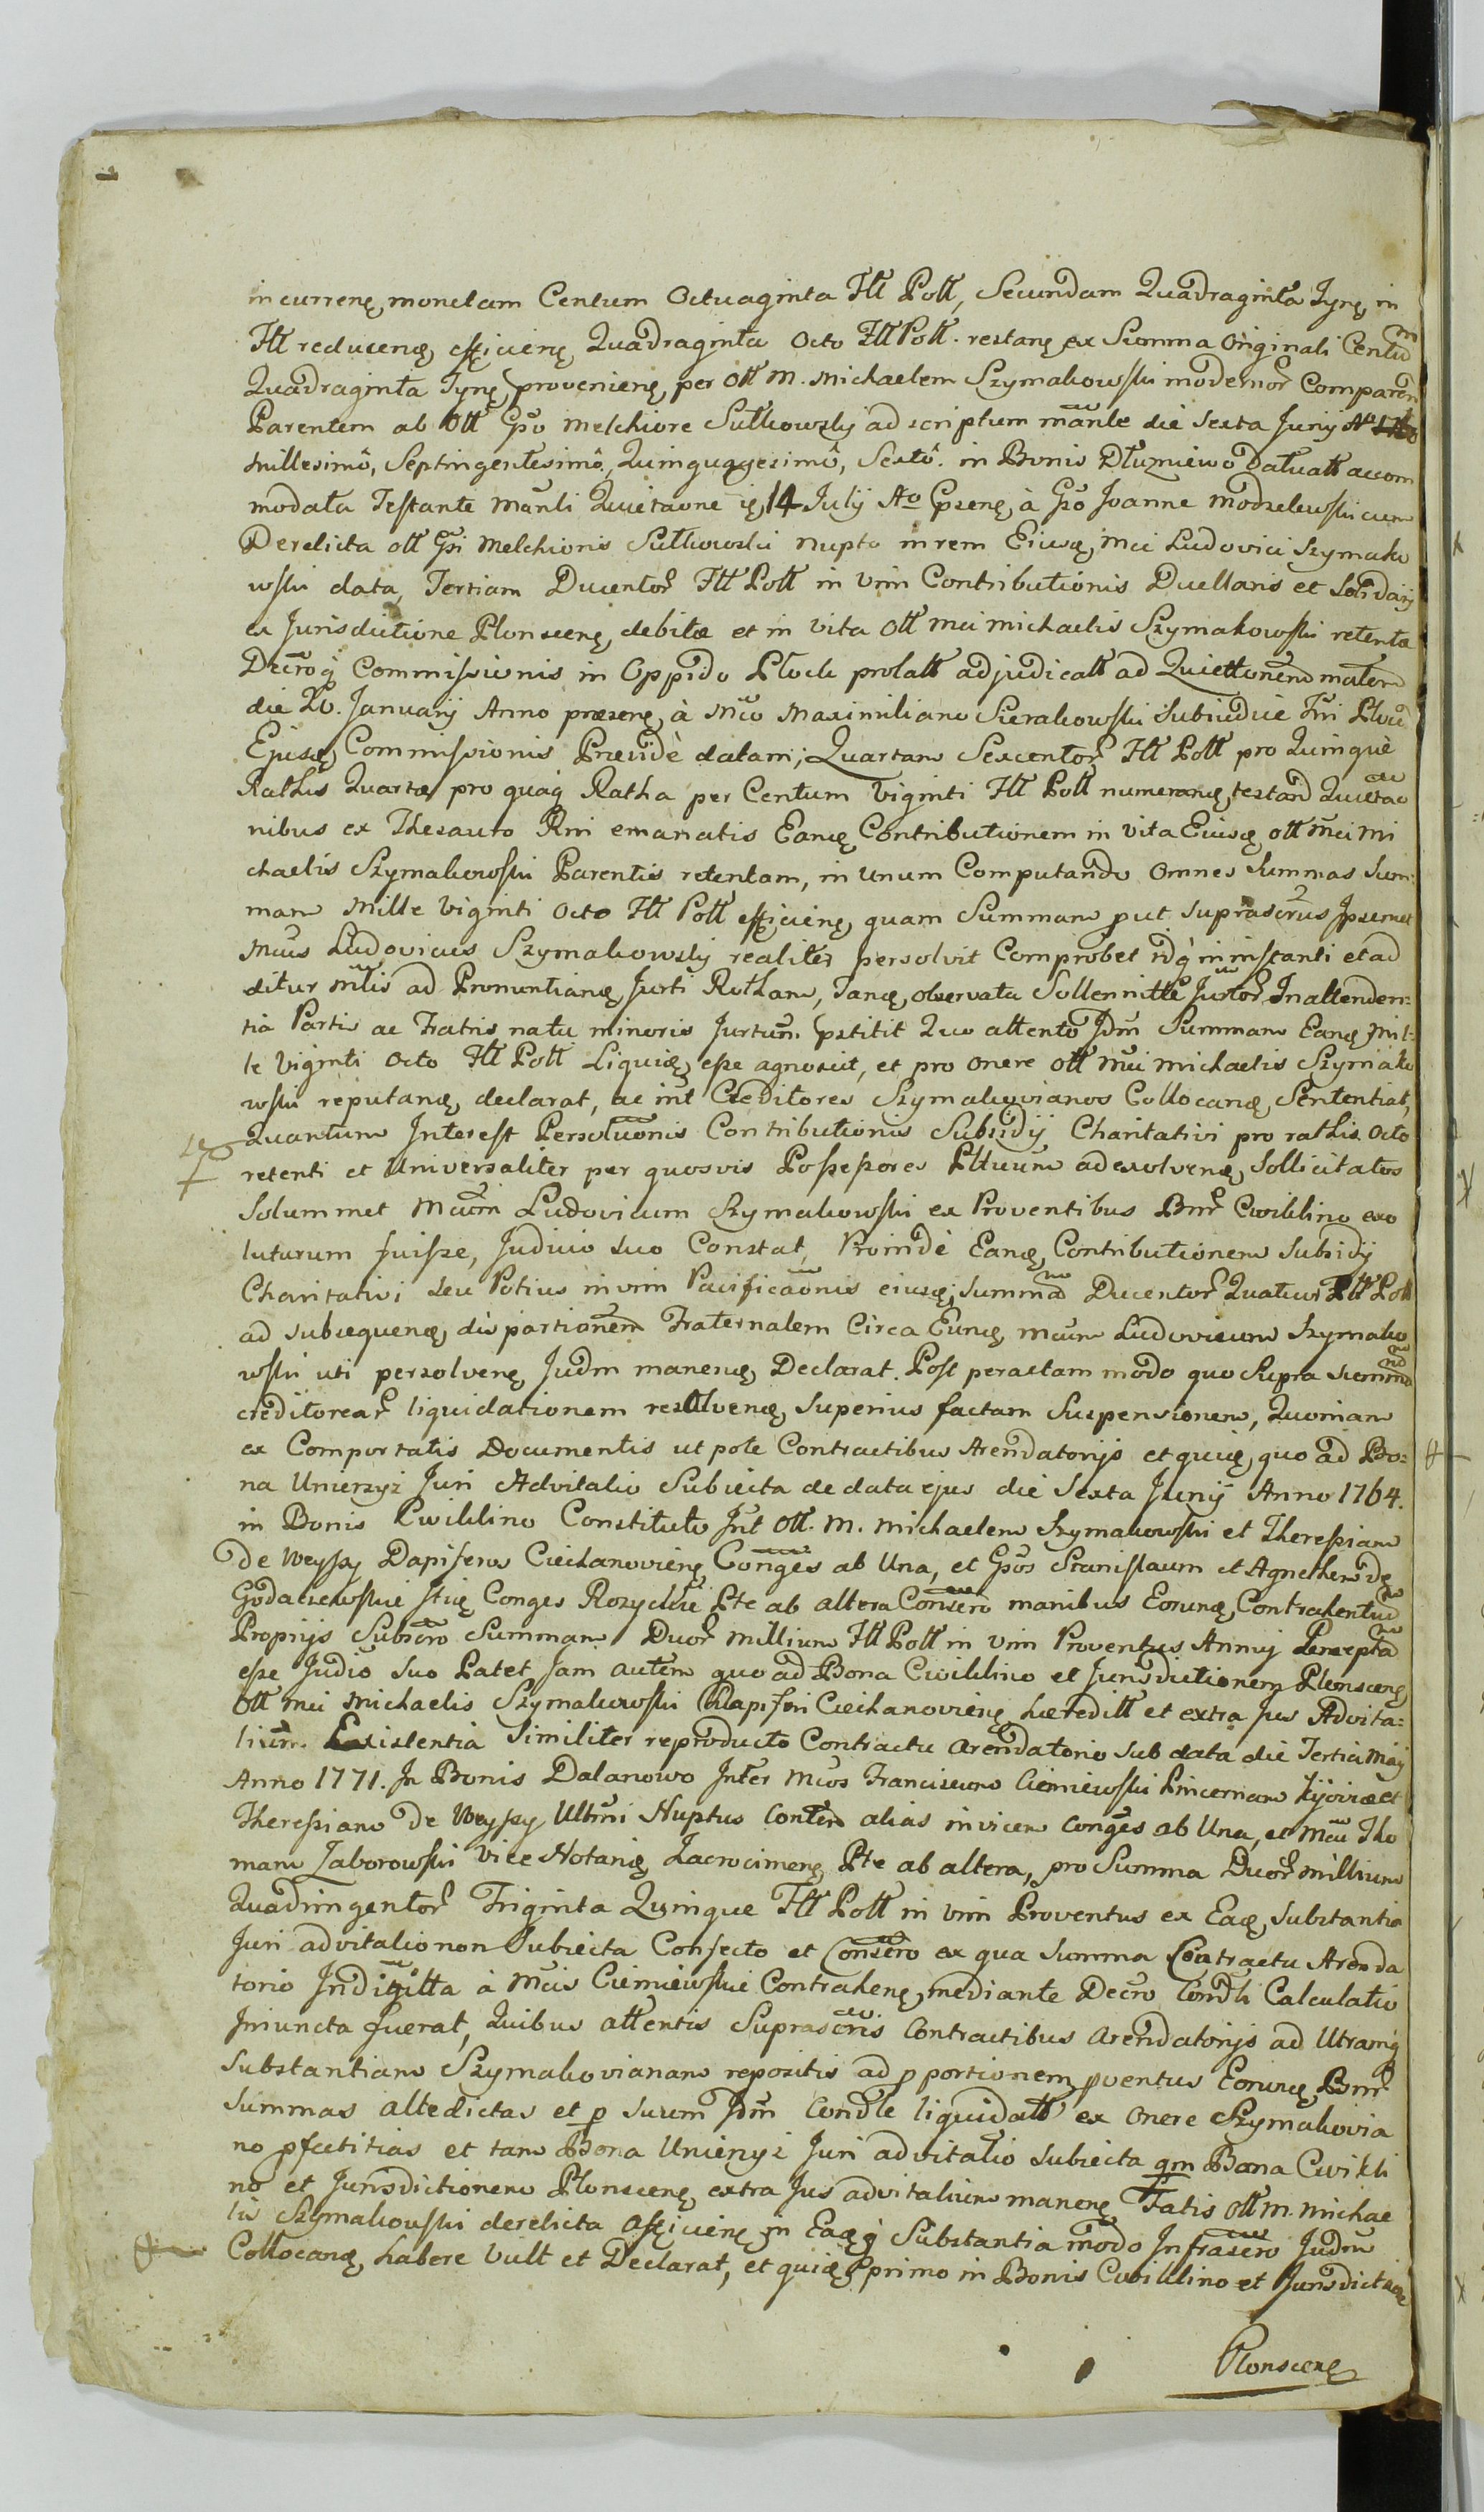 in currenę monetam Centum Octuaginta Fltt Poll, Secundam Quadraginta Tynę in
Fltt reducenę efficienę Quadraginta Octo Fltt Poll. restanę ex Summa Originali Centum
Quadraginta Tynę provenienę per Olł M. Michaelem Szymakowski modernor Comparen
Parentem ab Olł Gso Melchiore Sutkowsky ad scriptum manle die Sexta Junij Ao
Millesimo, Septingentesimo, Quinguagesimo, Sexto. in Bonis Dłuzniewo datuatt accom
modata Testante Manli Quietaone ię 14 Julij Ao Cpsenę à Gso Joanne Modzelewski cum
Derelicta olł Gsi Melchionis Sutkowski nupto in rem Eiusę Mci Ludovici Szymako
wski data, Tertiam Ducentor Fltt Poll in vim Contributionis Duellaris et Solidarij
ex Jurisdictione Plonscenę debitæ et in vita olł Mci Michaelis Szymakowski retentæ
Decroq Commissionis in Oppido Plock prolatt adjudicatt ad Quiettonem
die 20. Januarij Anno præsenę à Mco Maximiliano Sierakowski Subiudice Tri Ploc
Ejusę Commissionis Præside datam; Quartam Sexcentor Fltt Poll pro Quinque
Rathis Quartæ pro quaq Ratha per Centum Viginti Fltt Poll numeranę testand Quietao
nibus ex Thesauro Rni emanatis Eanę Contributionem in vita Eiusę olł Mci Mi
chaelis Szymakowski Parentis retentam, in unum Computando omnes Summas Sum:
mam Mille Viginti Octo Fltt Poll efficienę quam Summam put suprascrus Ipsemet
Mcus Ludovicus Szymakowsky realiter persolvit Comprobet idq in instanti et ad
ditur Mtis ad Pronuntianę Jurti Rotham, Tanę observata Sollennitte Jurtor Inattenden:
tia Partis ac Fratris natu minoris Jurtum pstitit Quo attento Jdm Summam Eanę Mil:
le Viginti Octo Fltt Poll Liquię esse agnoscit, et pro onere olł Mci Michaelis Szymako
wski reputanę declarat, ac int Creditores Szymakovianos Collocanę Sententiat,
Quantum Interest Persolutionis Contributionis Subsidij Charitativi pro rathis Octo
retenti et Universaliter per quosvis Possessores Pttuum ad exolvenę Sollicitatos
Solummet Mcum Ludovicum Szymakowski ex Proventibus Bnr Cwiklino exo
luturum fuisse, Judicio suo Constat, Proinde Eanę Contributionem Subsidij
Charitativi seu Potius in vim Pacificaonis eiusę Summa Ducentor Quatuor Fltt Poll
ad subsequenę dispartionem Fraternalem Circa Eunę Mcum Ludovicum Szymako
wski uti persolvenę Judm manenę Declarat. Post peractam modo quo Supra summa
creditorear liquidationem resolvenę Superius factam Suspensionem, Quoniam
ex Comportatis Documentis ut pote Contractibus Arendatorijs et quię quo ad Bo:
na Unierzyż Juri Advitalio Subiecta de data ejus die Sexta Junij Anno 1764.
in Bonis Cwiklino Constituto Int Olł. M. Michaelem Szymakowski et Theressiam
De Weyssy Dapiferu Ciechanovienę Conges ab Una, et Gsos Stanislaum et Agnethem de
Godaczewskie Conges Rozyckie Pte ab altera Consero manibus Eorunę Contrahentiu
Proprijs Subscro Summam Duor Millium Fltt Poll in vim Proventus Annuj Percepta
esse Judio suo Patet, Jam autem quo ad Bona Cwiklino et Jurisdictionem Plonscenę
olł Mci Michaelis Szymakowski Dapiferi Ciechanovienę hæreditt et extra jus Advita:
lium Existentia Similiter reproducto Contractu Arendatorio sub data die Tertia Maij
Anno 1771. In Bonis Dalanowo Inter Mcos Franciscum Ciemiewski Pincernam Kijoviæ et
Theressiam De Weyssy Ultmi Nuptus Contem alias invicem Conges ab Una, et Mcu Tho
mam Zaborowski Vice Notarię Zacrocimenę Pte ab altera, pro Summa Duor Millium
Quadringentor Triginta Quinque Fltt Poll in vim Proventus ex Eaę Substantia
Juri advitalio non Subiecta Confecto et Consero ex qua Summa Contractu Arenda
torio Indigitta à Mcis Ciemiewskie Contrahenę mediante Decro Condli Calculatio
Iniuncta fuerat, Quibus attentis Suprascris Contractibus Arendatorijs ad Utramq
Substantiam Szymakovianam repositis ad pportionem pventus Eorunę Bnr
Summas altedictas et p suum Jdm Condle liquidatt ex onere Szymakovia
no pfectitias et tam Bona Unierzyż Juri advitalio subiecta qm Bona Cwikli
no et Jurisdictionem Plonscenę extra Jus advitalium manenę Fatis olł M. Michae
lis Szymakowski derelicta Officienę in Eaęq Substantia modo Infrascro Judm
Collocanę habere Vult et Declarat, et quię primo in Bonis Cwiklino et Jurisdictione
Plonscenę